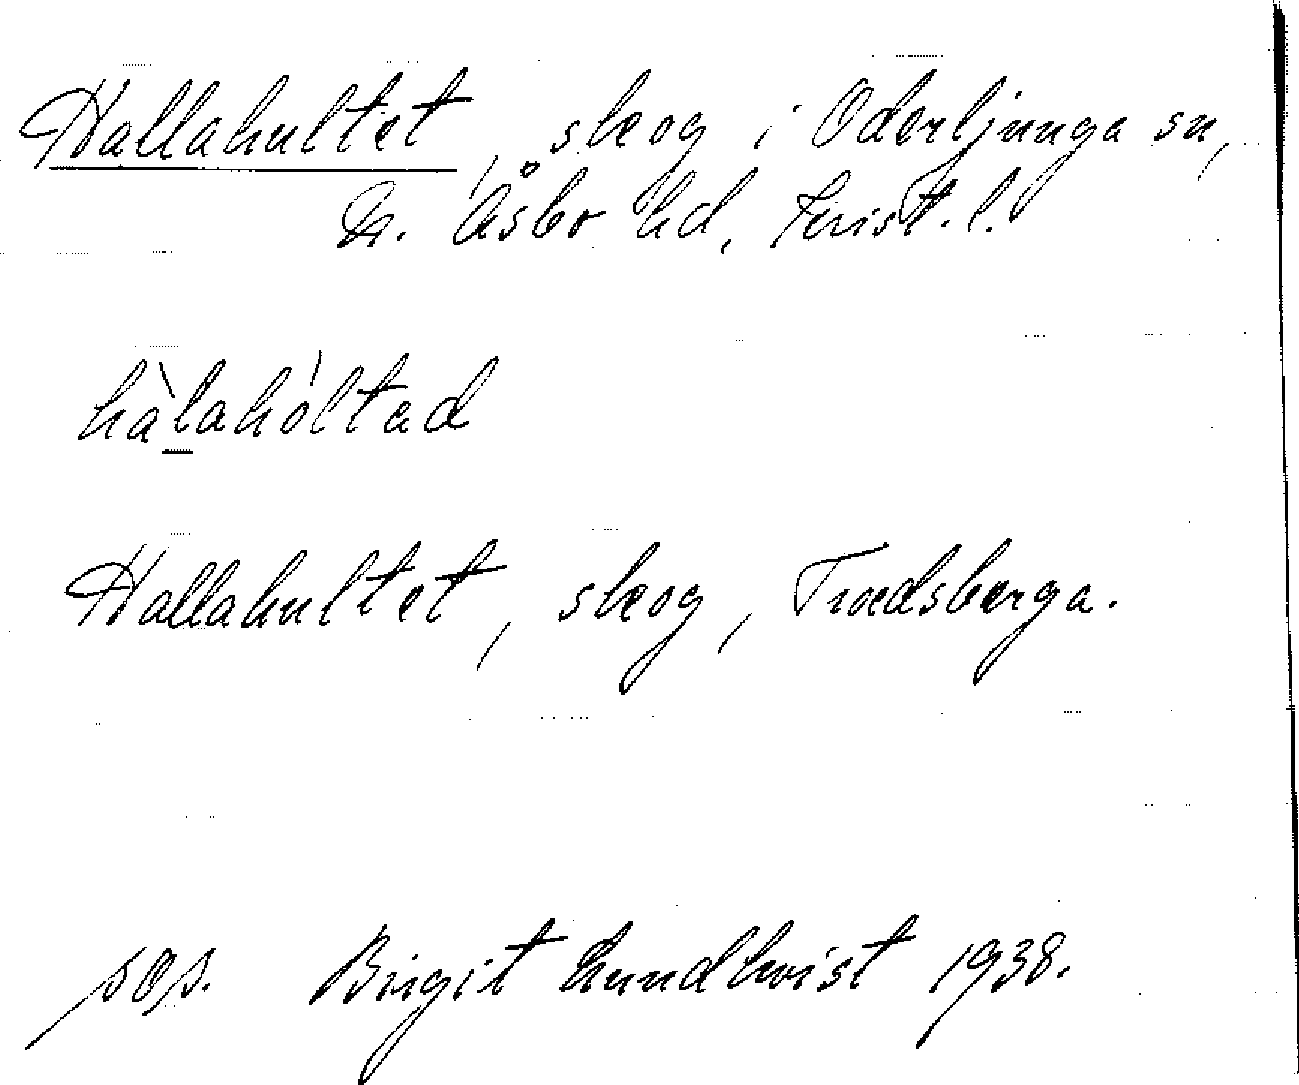 Hallahultet, skog i Oderljunga sn,
N. Åsbo hd, Krist. l.
hàlahóltad
Hallahultet, skog, Troedsberga.
sos. Birgit Lundkvist 1938.